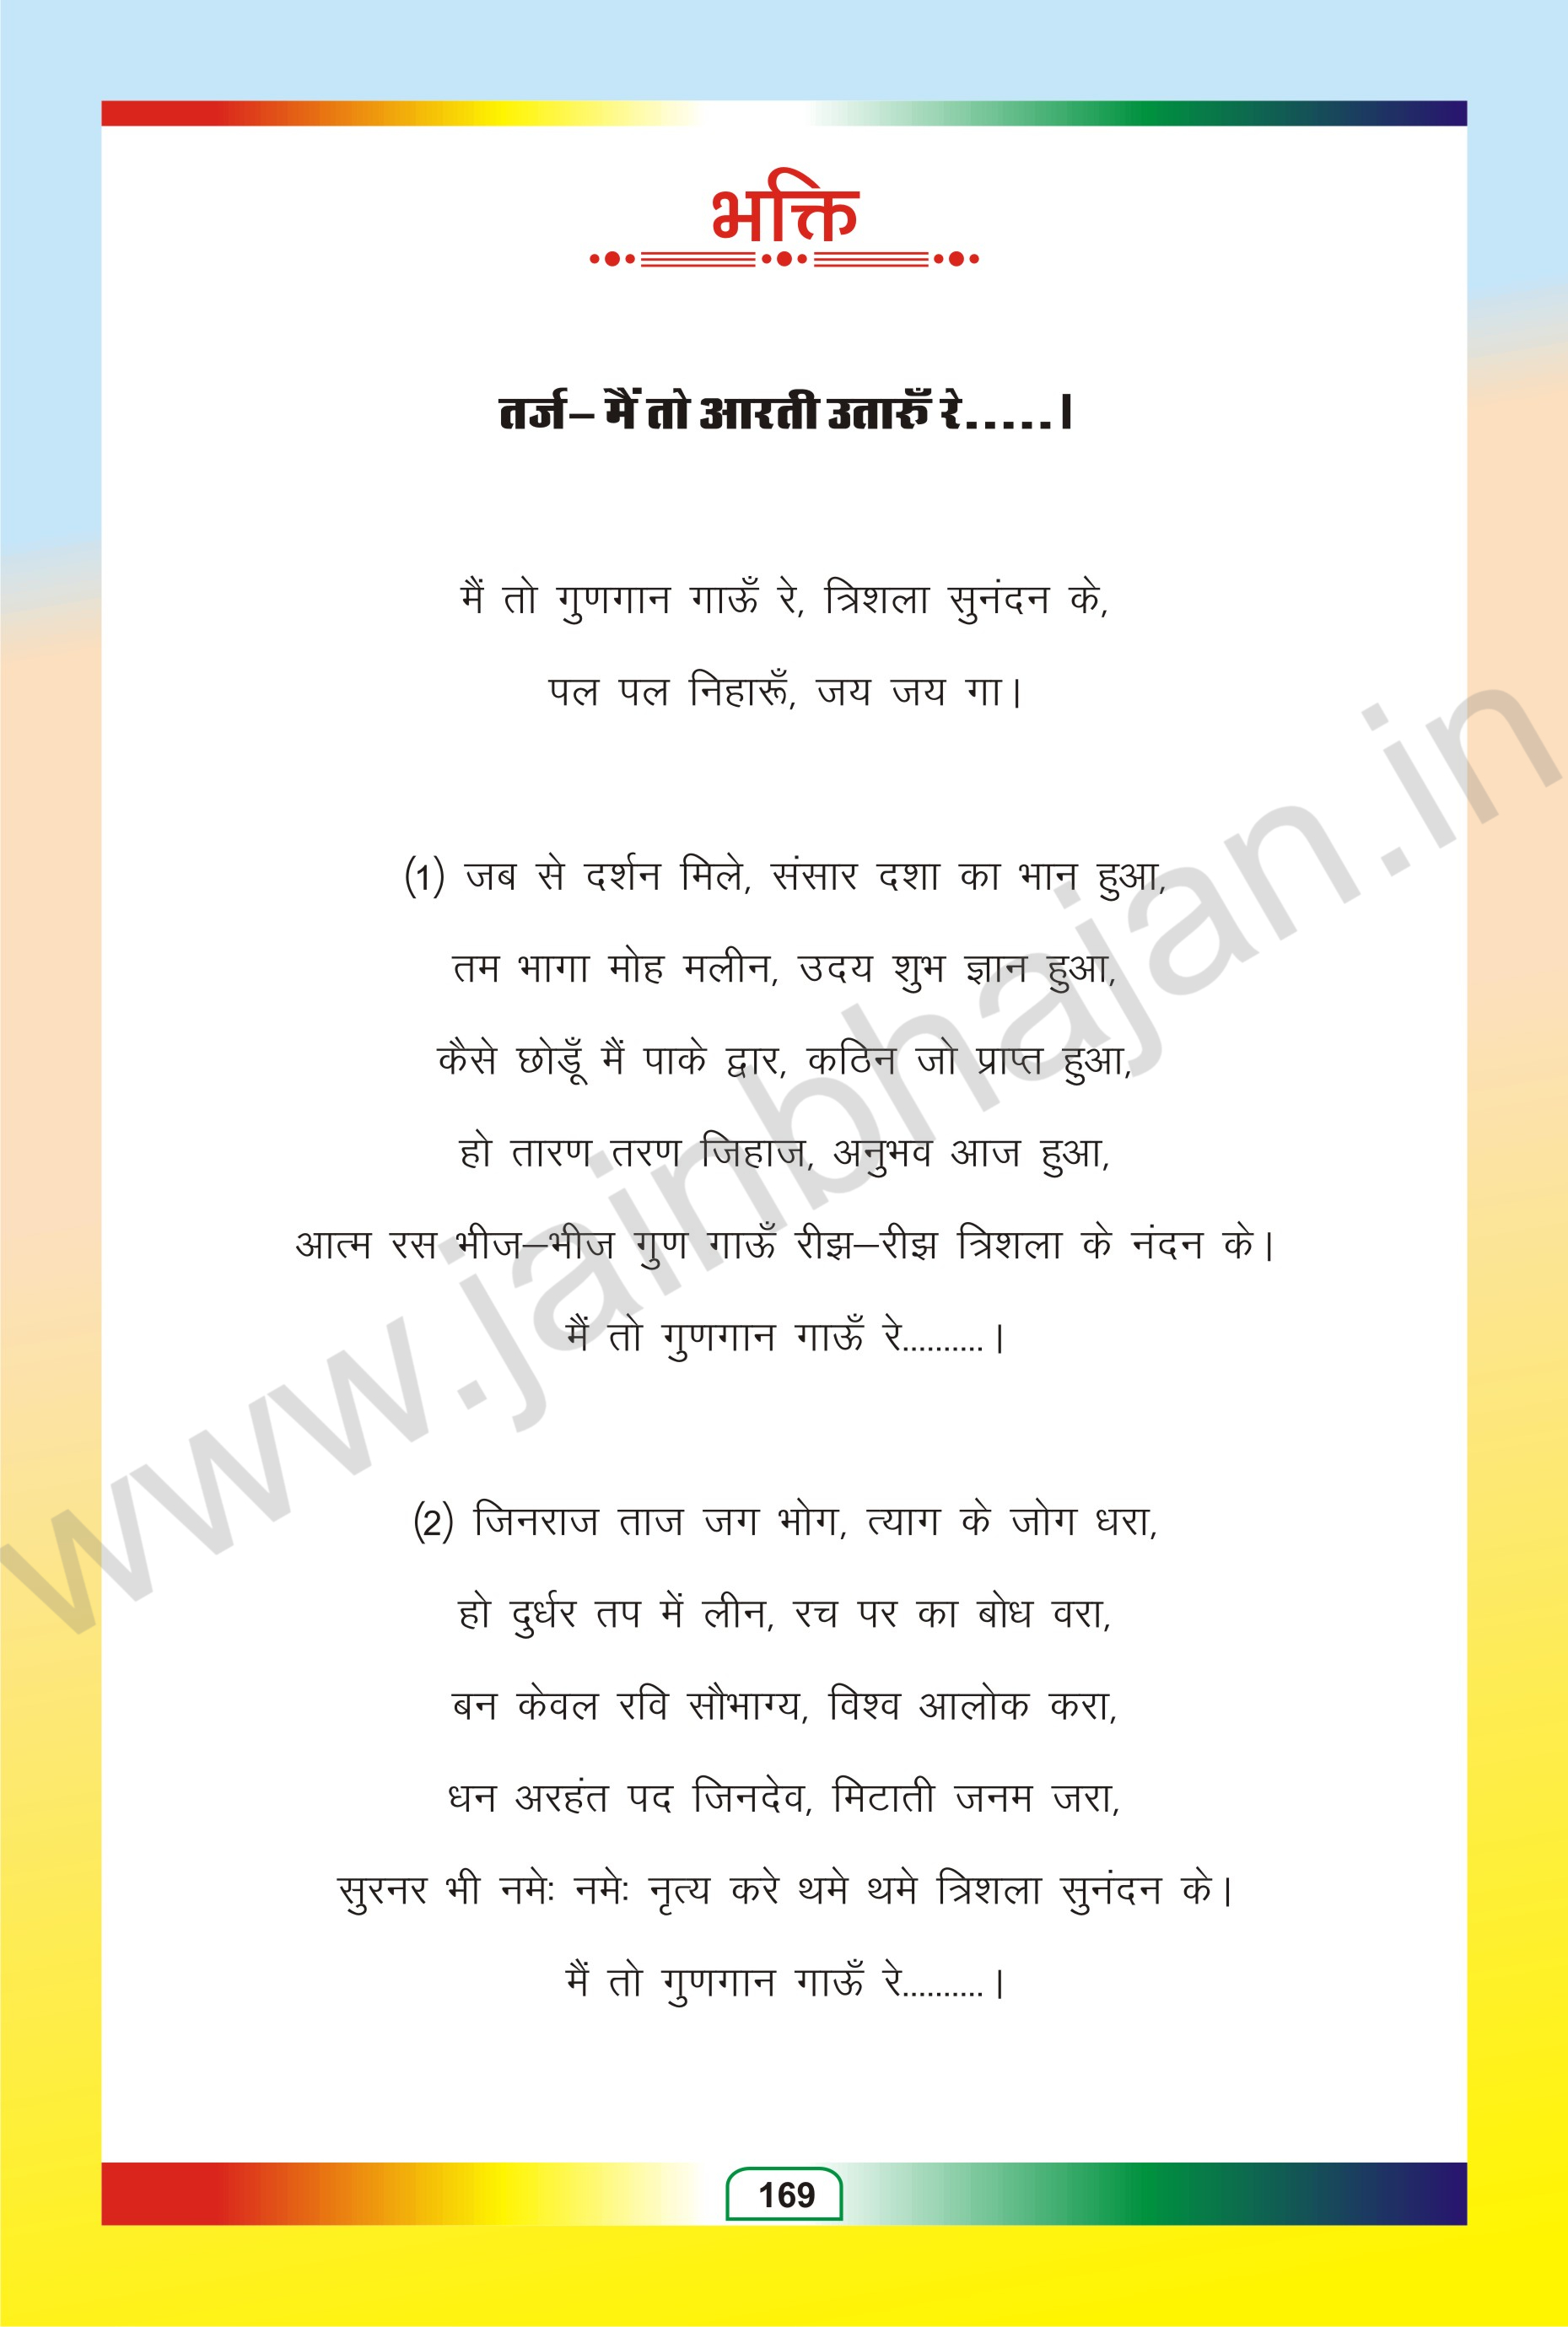 भक्ति
तर्ज– मैं तो आरती उतारूँ रे.....।
मैं तो गुणगान गाऊँ रे, त्रिशला सुनंदन के,
पल पल निहारूँ, जय जय गा।
(1) जब से दर्शन मिले, संसार दशा का भान हुआ,
तम भागा मोह मलीन, उदय शुभ ज्ञान हुआ,
कैसे छोडूँ मैं पाके द्वार, कठिन जो प्राप्त हुआ,
हो तारण तरण जिहाज, अनुभव आज हुआ,
आत्म रस भीज–भीज गुण गाऊँ रीझ–रीझ त्रिशला के नंदन के।
मैं तो गुणगान गाऊँ रे..........।
(2) जिनराज ताज जग भोग, त्याग के जोग धरा,
हो दुर्धर तप में लीन, रच पर का बोध वरा,
बन केवल रवि सौभाग्य, विश्व आलोक करा,
धन अरहंत पद जिनदेव, मिटाती जनम जरा,
सुरनर भी नमेः नमेः नृत्य करे थमे थमे त्रिशला सुनंदन के।
मैं तो गुणगान गाऊँ रे..........।
www.jainbhajan.in
169